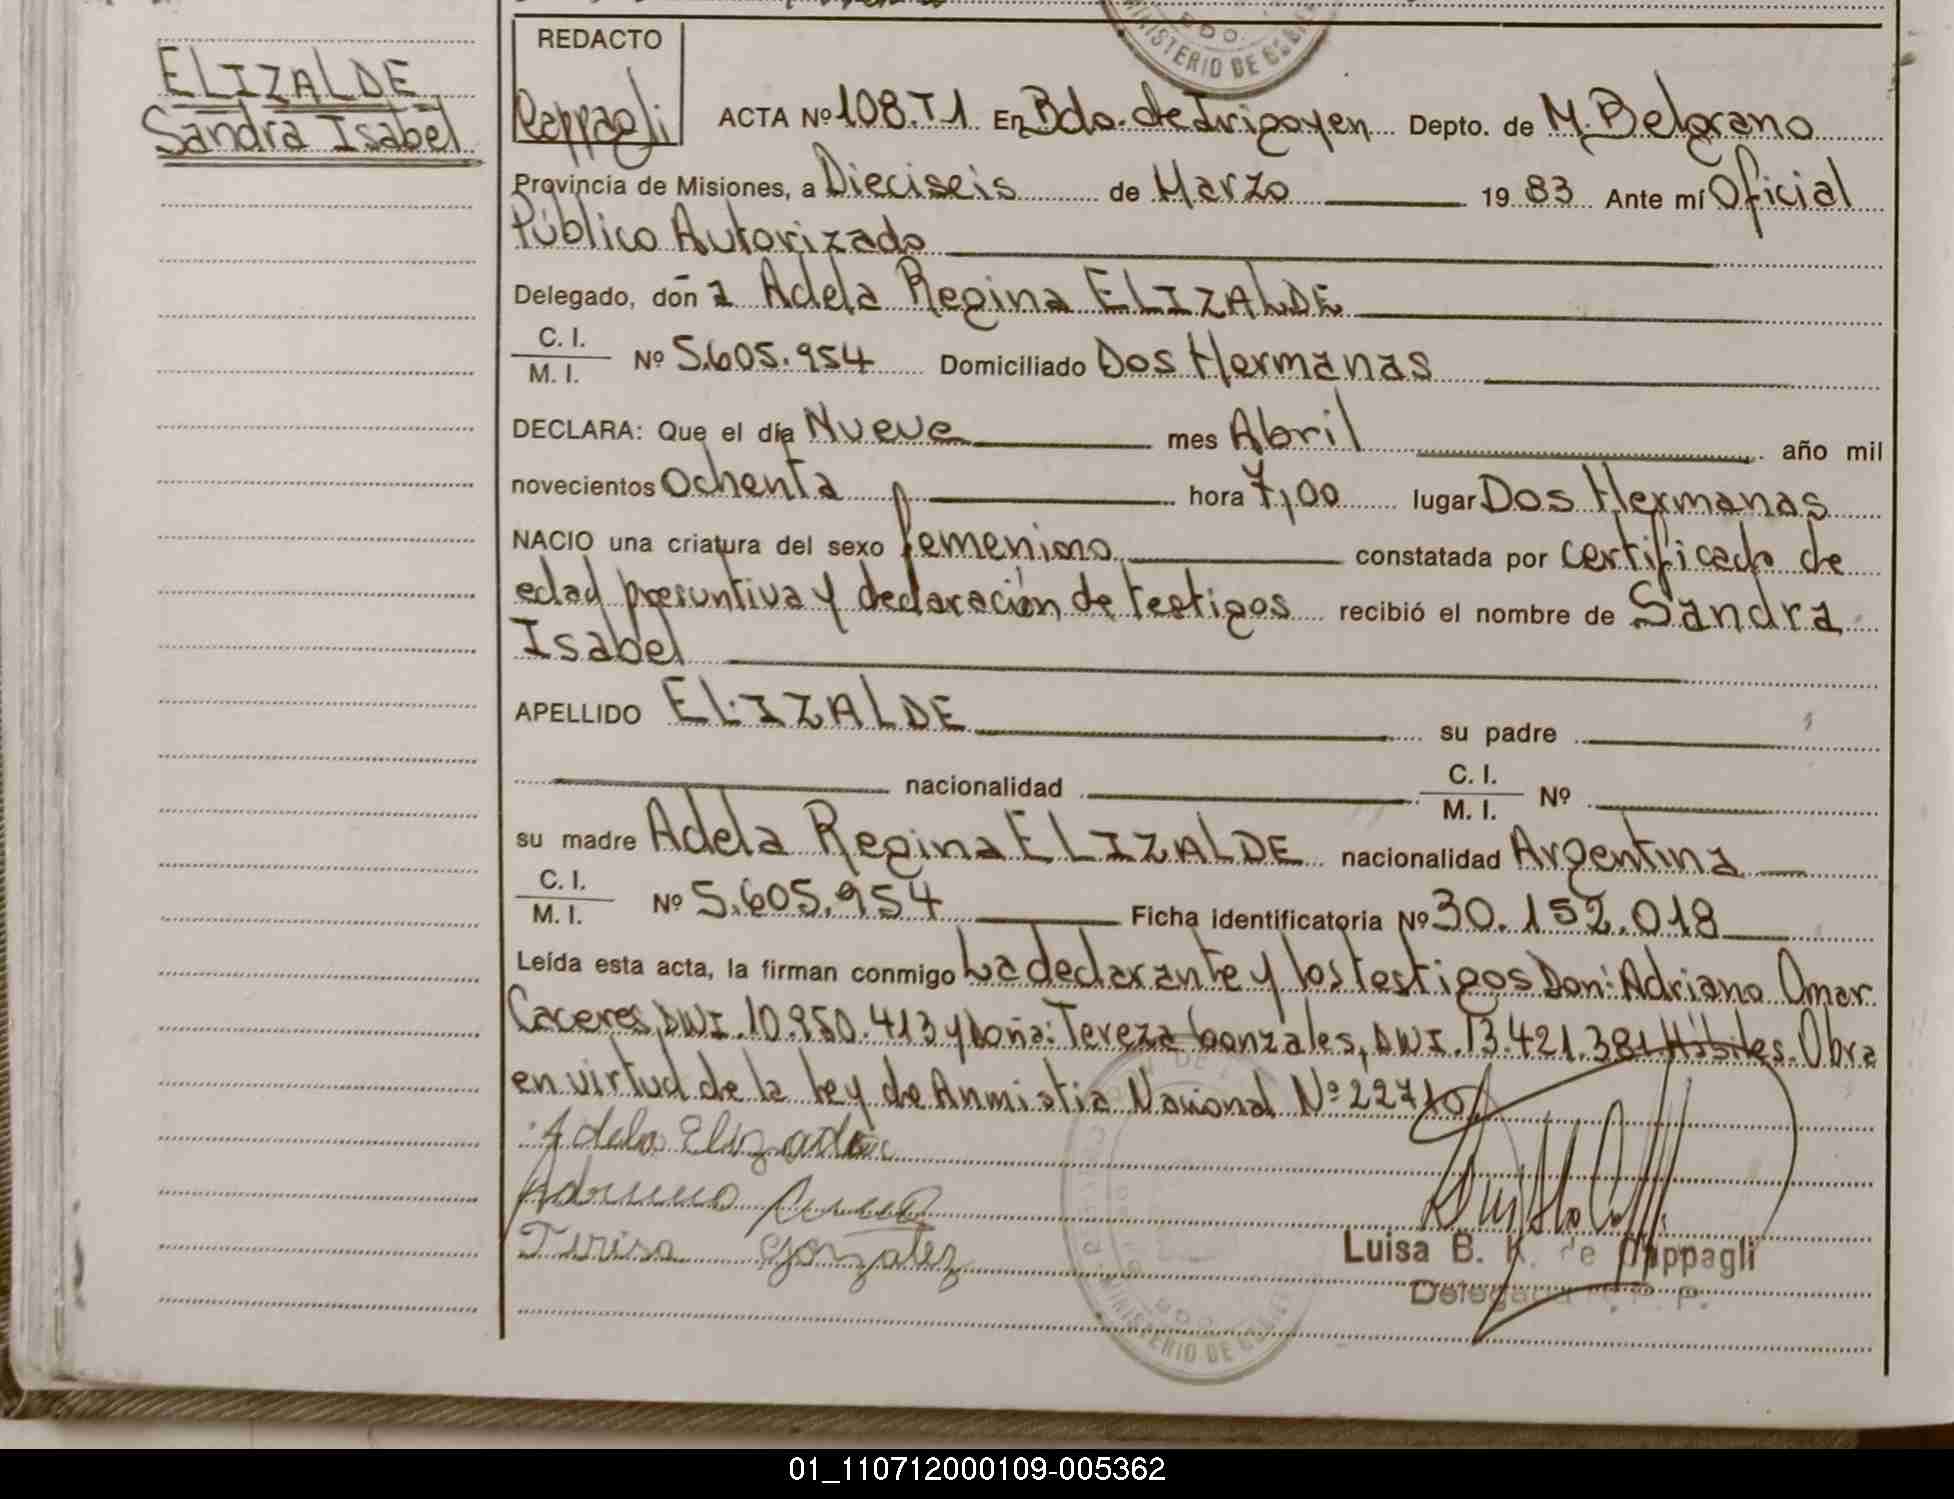 ELIZALDE
Sandra Isabel
REDACTO
Cappagli
MINISTERIO DE GOBIE
ACTA Nº 108.T1 En Bdo. de Irigoyen Depto. de M. Belgrano
Provincia de Misiones, a Dieciseis de Marzo 19 83 Ante mí Oficial
Público Autorizado
Delegado, don a Adela Regina ELIZALDE
C. I.
M. I. Nº 5.605.954 Domiciliado Dos Hermanas
DECLARA: Que el día Nueve mes Abril año mil
novecientos ochenta hora 7,00 lugar Dos Hermanas
NACIO una criatura del sexo femenino constatada por certificado de
edad presuntiva y declaración de testigos recibió el nombre de Sandra
Isabel
APELLIDO ELIZALDE su padre
nacionalidad C. I.
M. I. Nº
su madre Adela Regina ELIZALDE nacionalidad Argentina
C. I.
M. I. Nº 5.605.954 Ficha identificatoria Nº 30.152.018
Leída esta acta, la firman conmigo La declarante y los testigos Don: Adriano Omar
Caceres, DNI. 10.950.413 y Doña: Tereza Gonzales, DNI. 13.421.381 Hábiles. Obra
en virtud de la ley de Anmistia Nacional Nº 22710
Adela Elizalde
Teresa Gonzalez
Luisa B. K. de Cappagli
Delegada R. P. P.
MINISTERIO DE GOBIE
01_110712000109-005362